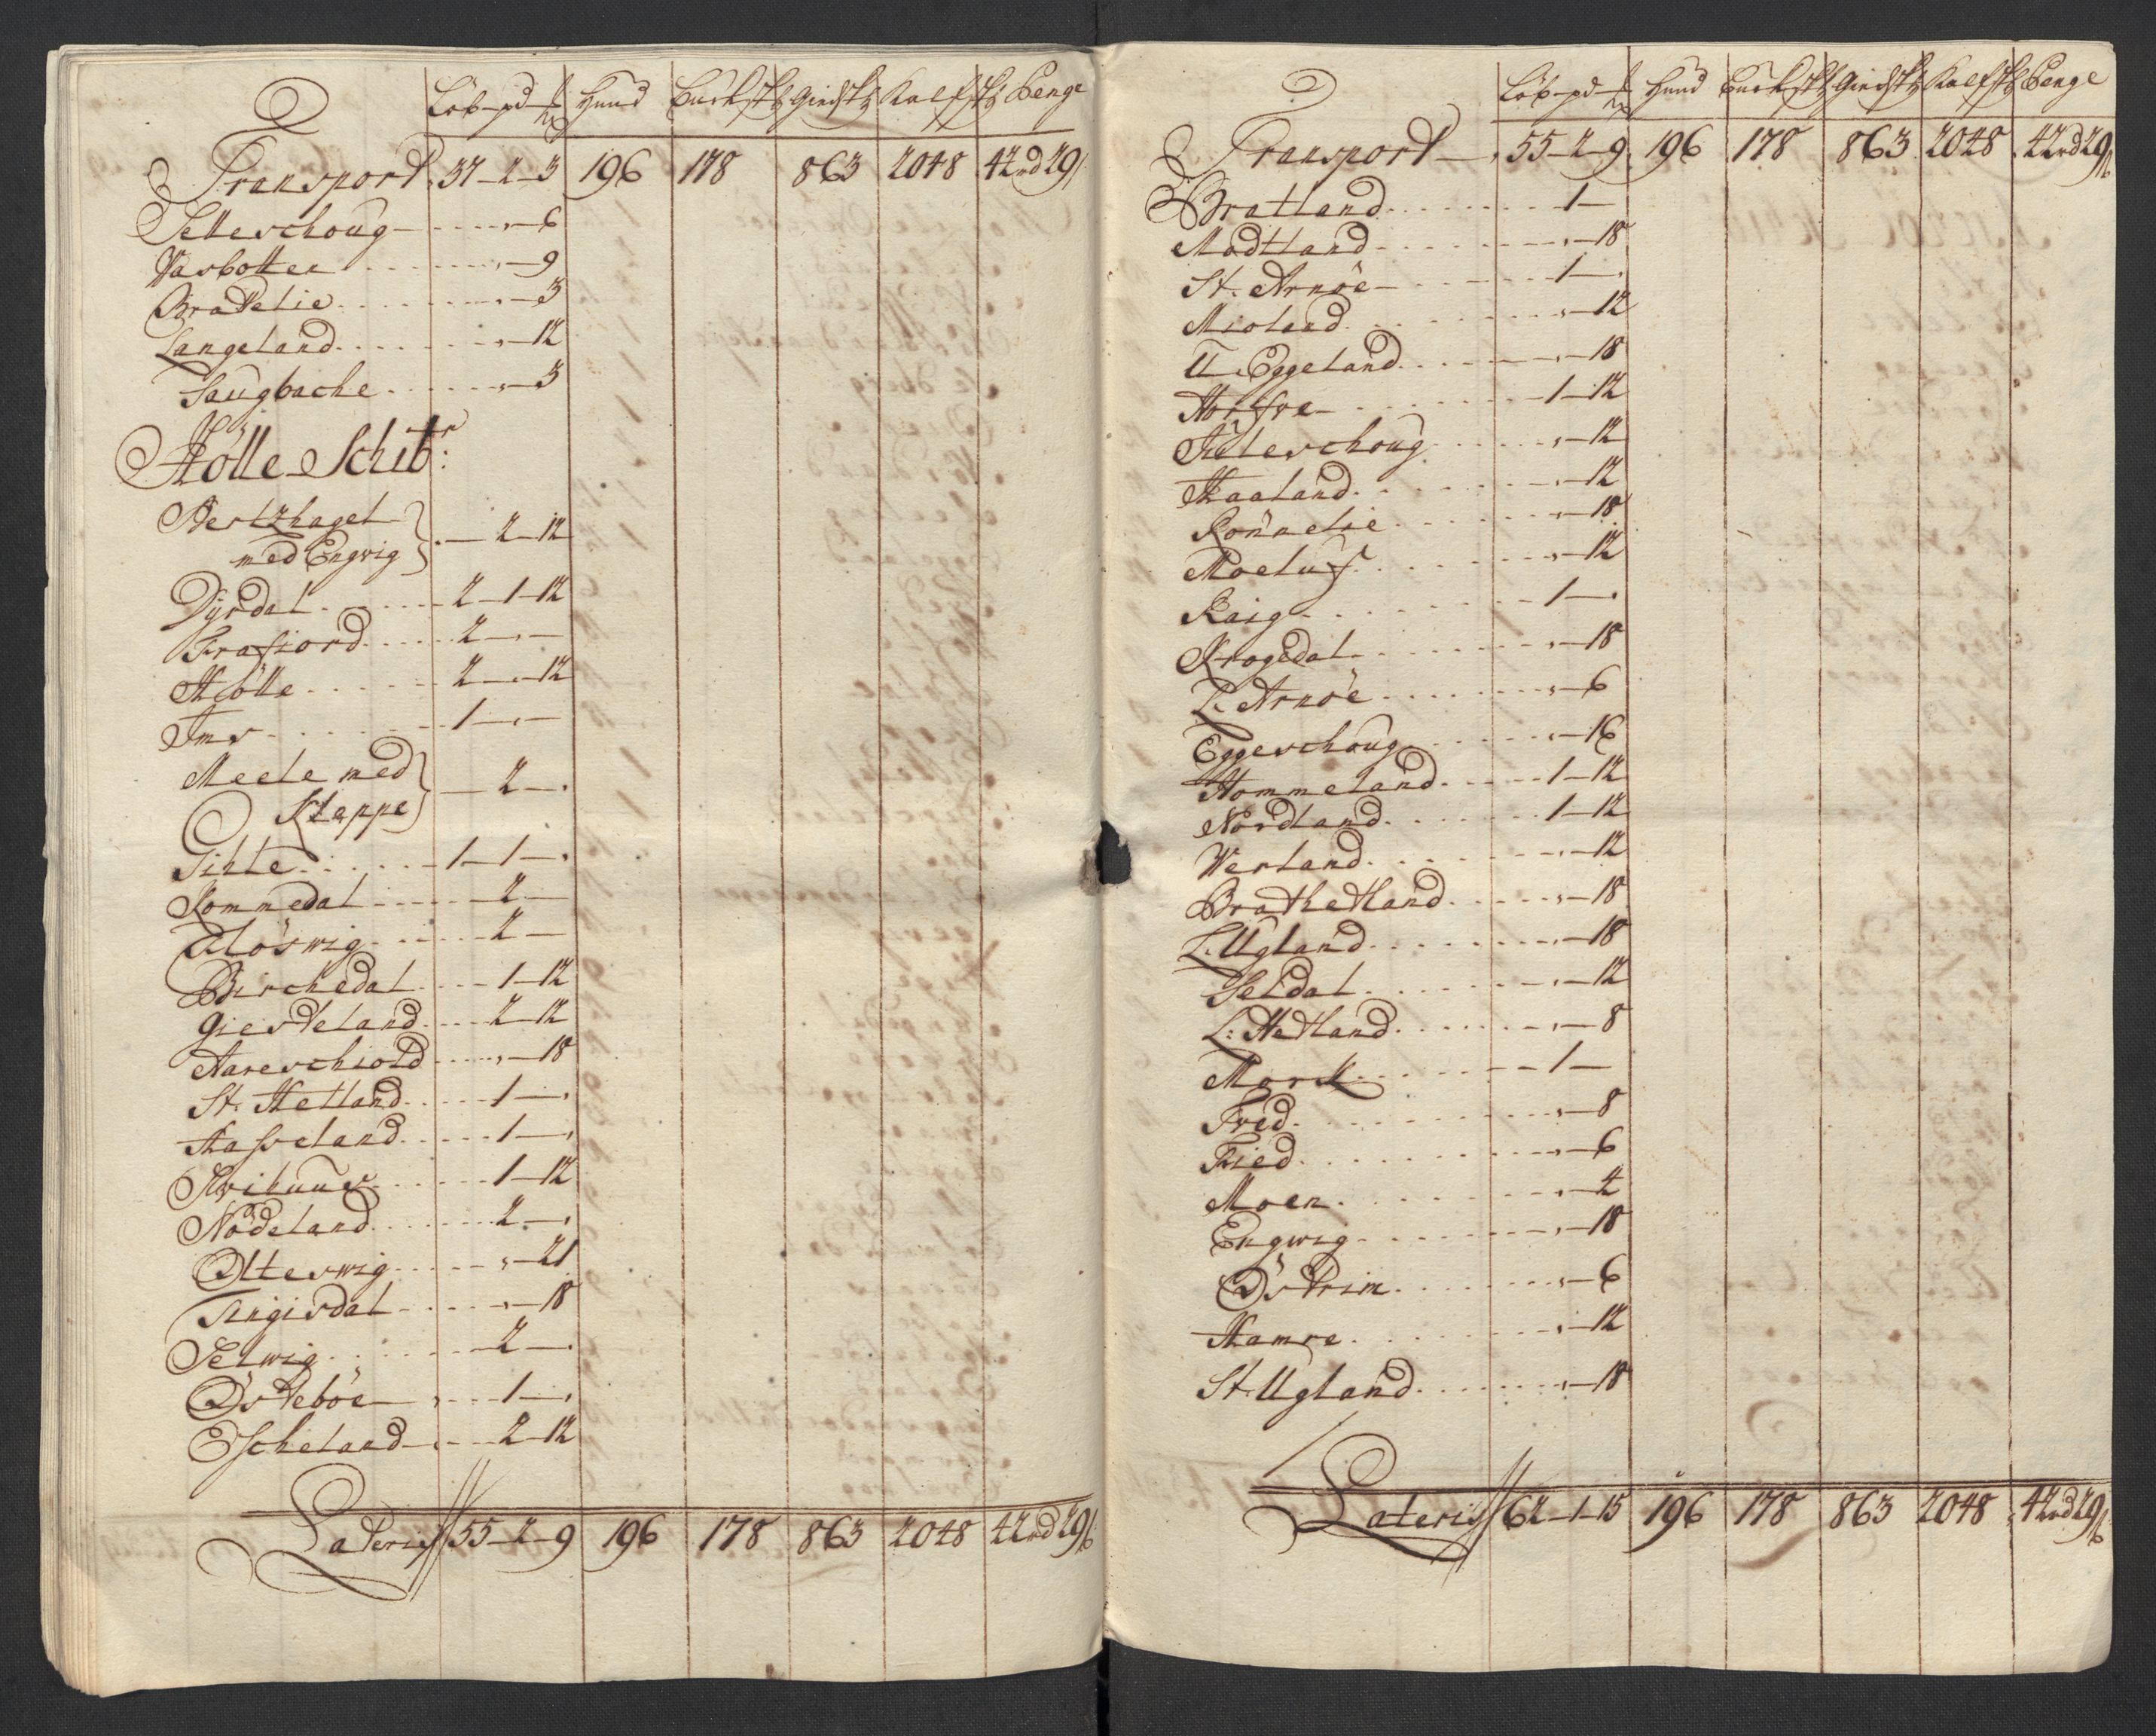 Löb - pd - Hund Buckskd Giedskd Kalfskd Penge
Transport 37-2-3 196 178 863 2048 42rd 29
Setterchoug - 6
Varbotten - 9
Bratelie - 3
Langeland - 12
Saugbache - 3
Hölle Schib:r
Hertzhaget
med Engvig 2-12
Dyrdal 2-1-12
Frafiord 2
Hölle 2-12
Ims 1
Meele med
Kleppe 2
Tihle 1-1
Kommedal 2
Ulöswig 2
Birchedal 1-12
Giesteland 2-12
Aareschiold - 18
St. Hetland 1
Hasseland 1
Schibuuer 1-12
Nödeland 2
Olteswig - 21
Tengisdal - 18
Selwig 2
Östeböe 1
Escheland 2-12
Lateris 55-2-9 196 178 863 2048 42rd 29
Löb - pd - Hund Buckskd Giedskd Kalfskd Penge
Transport 55-2-9 196 178 863 2048 42rd 29
Bratland 1
Madtland - 18
St. Arnöe 1
Mioland - 12
U. Eggeland - 18
Horfve 1-12
Fuleschoug - 12
Haaland - 12
Rönnelie - 18
Moeluf - 12
Kaig 1
Krogedal - 18
L. Arnöe - 6
Eggeschoug - 16
Hommeland 1-12
Nordland 1-12
Werland - 12
Brathetland - 18
L. Ugland - 18
Seldal - 12
L: Hetland - 8
Marck 1
Fred - 8
Tied - 6
Moen - 4
Engwig - 18
Östrim - 6
Hamre - 12
St. Ugland - 18
Lateris 62-1-15 196 178 863 2048 42rd 29